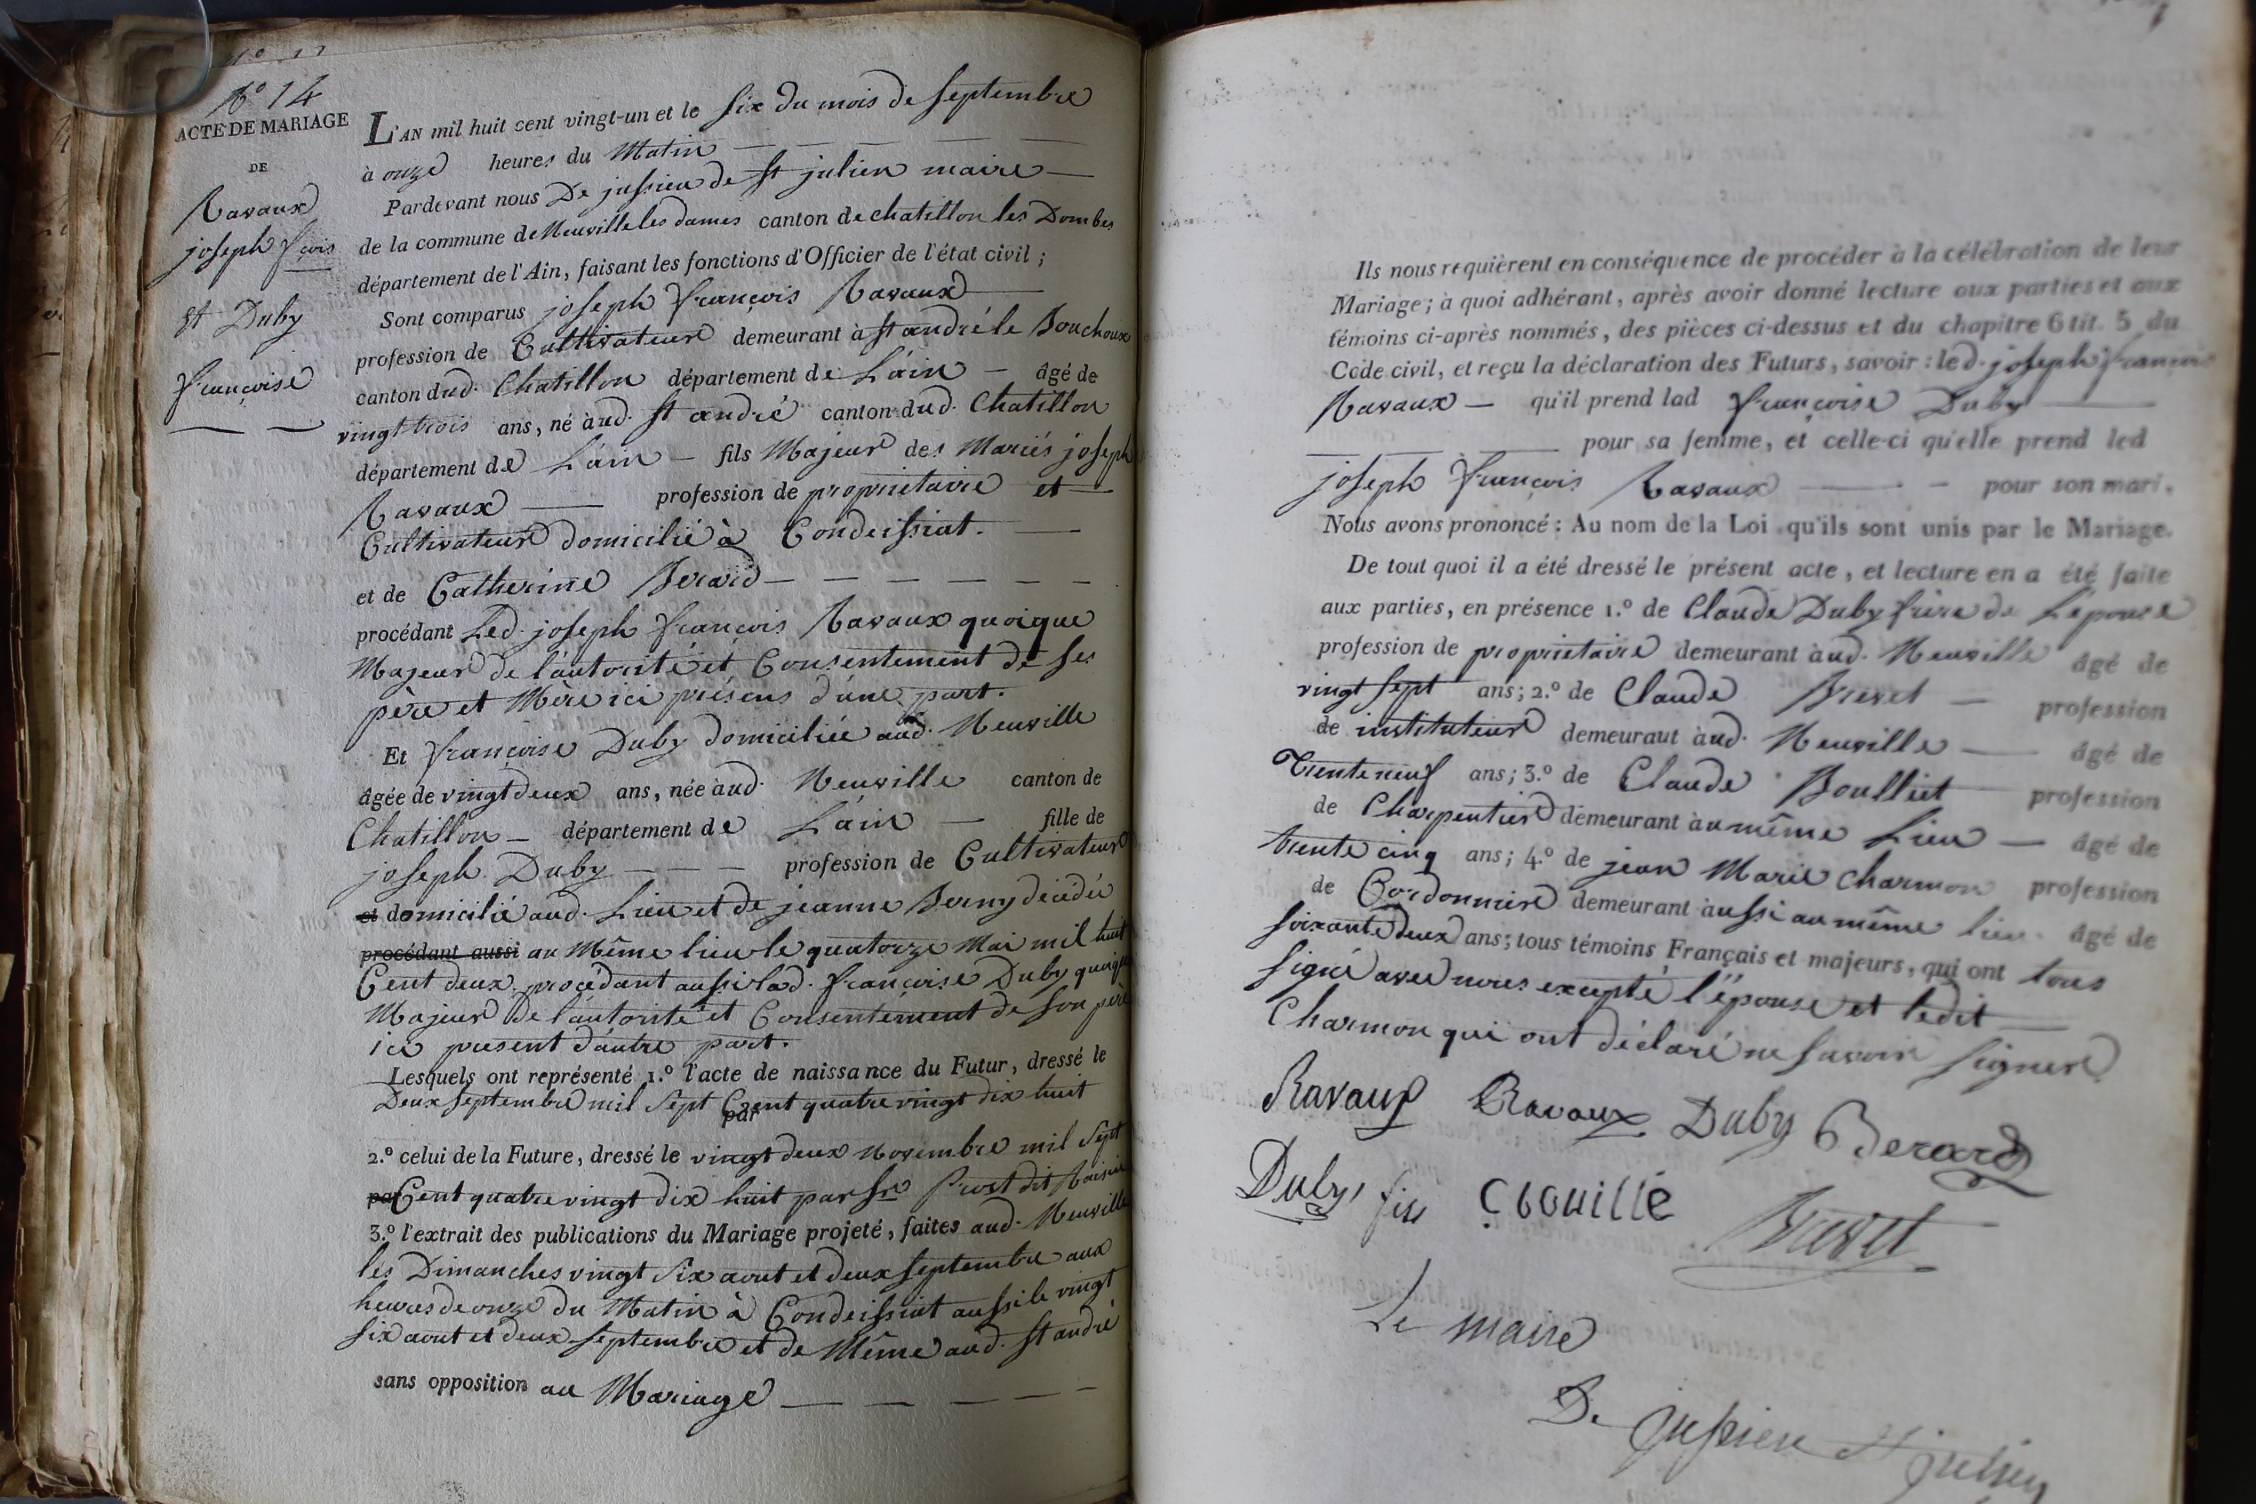 N° 14
ACTE DE MARIAGE
DE
Ravaux
joseph fçois
et Duby
françoise
L'AN mil huit cent vingt-un et le six du mois de septembre
à onze heures du Matin
Pardevant nous De jussieu de st julien maire
de la commune de Neuville les dames canton de chatillon les Dombes
département de l'Ain, faisant les fonctions d'Officier de l'état civil ;
Sont comparus joseph françois Ravaux
profession de Cultivateur demeurant à st andré le Bouchoux
canton dud. Chatillon département de L'ain âgé de
vingt trois ans, né à ud. st andré canton dud. Chatillon
département de L'ain fils Majeur des Mariés joseph
Ravaux profession de propriétaire et
Cultivateur domicilié à Condeissiat.
et de Catherine Berard
procédant Led. joseph françois Ravaux quoique
Majeur de l'autorité et Consentement de ses
père et Mère ici présens d'une part.
Et françoise Duby domiciliée aud. Neuville
âgée de vingt deux ans, née à ud. Neuville canton de
Chatillon département de L'ain fille de
joseph Duby profession de Cultivateur
et domicilié aud. Lieu et de jeanne Berny décédée
procédant aussi au Même lieu le quatorze Mai mil huit
Cent deux. procédant aussi lad. françoise Duby quoique
Majeur de l'autorité et Consentement de son père
ici present d'autre part.
Lesquels ont représenté 1.° l'acte de naissance du Futur, dressé le
Deux septembre mil sept Cent quatre vingt dix huit
par
2.° celui de la Future, dressé le vingt deux novembre mil sept
par Cent quatre vingt dix huit par Sr Prost dit
3.° l'extrait des publications du Mariage projeté, faites aud. Neuville
les Dimanches vingt six aout et deux septembre aux
heures de onze du Matin à Condeissiat aussi le vingt
six aout et deux septembre et de Même aud. st andré
sans opposition au Mariage
Ils nous requièrent en conséquence de procéder à la célébration de leur
Mariage ; à quoi adhérant, après avoir donné lecture aux parties et aux
témoins ci-après nommés, des pièces ci-dessus et du chapitre 6 tit. 5 du
Code civil, et reçu la déclaration des Futurs, savoir : led. joseph françois
Ravaux qu'il prend lad françoise Duby
pour sa femme, et celle-ci qu'elle prend led
joseph françois Ravaux pour son mari.
Nous avons prononcé : Au nom de la Loi qu'ils sont unis par le Mariage.
De tout quoi il a été dressé le présent acte, et lecture en a été faite
aux parties, en présence 1.° de Claude Duby frère de L'epouse
profession de propriétaire demeurant à ud. Neuville âgé de
vingt sept ans ; 2.° de Claude Brevet profession
de instituteur demeurant à ud. Neuville âgé de
Trente neuf ans ; 3.° de Claude Boulliet profession
de Charpentier demeurant à u même Lieu âgé de
trente cinq ans ; 4.° de jean Marie Charmon profession
de Cordonnier demeurant aussi au même lieu. âgé de
soixante deux ans ; tous témoins Français et majeurs, qui ont tous
signé avec nous excepté l'épouse et ledit
Charmon qui ont déclaré ne savoir signer
Ravaux Ravaux Duby Berard
Duby fils C bouillé Brevet
Le maire
De jussieu st julien